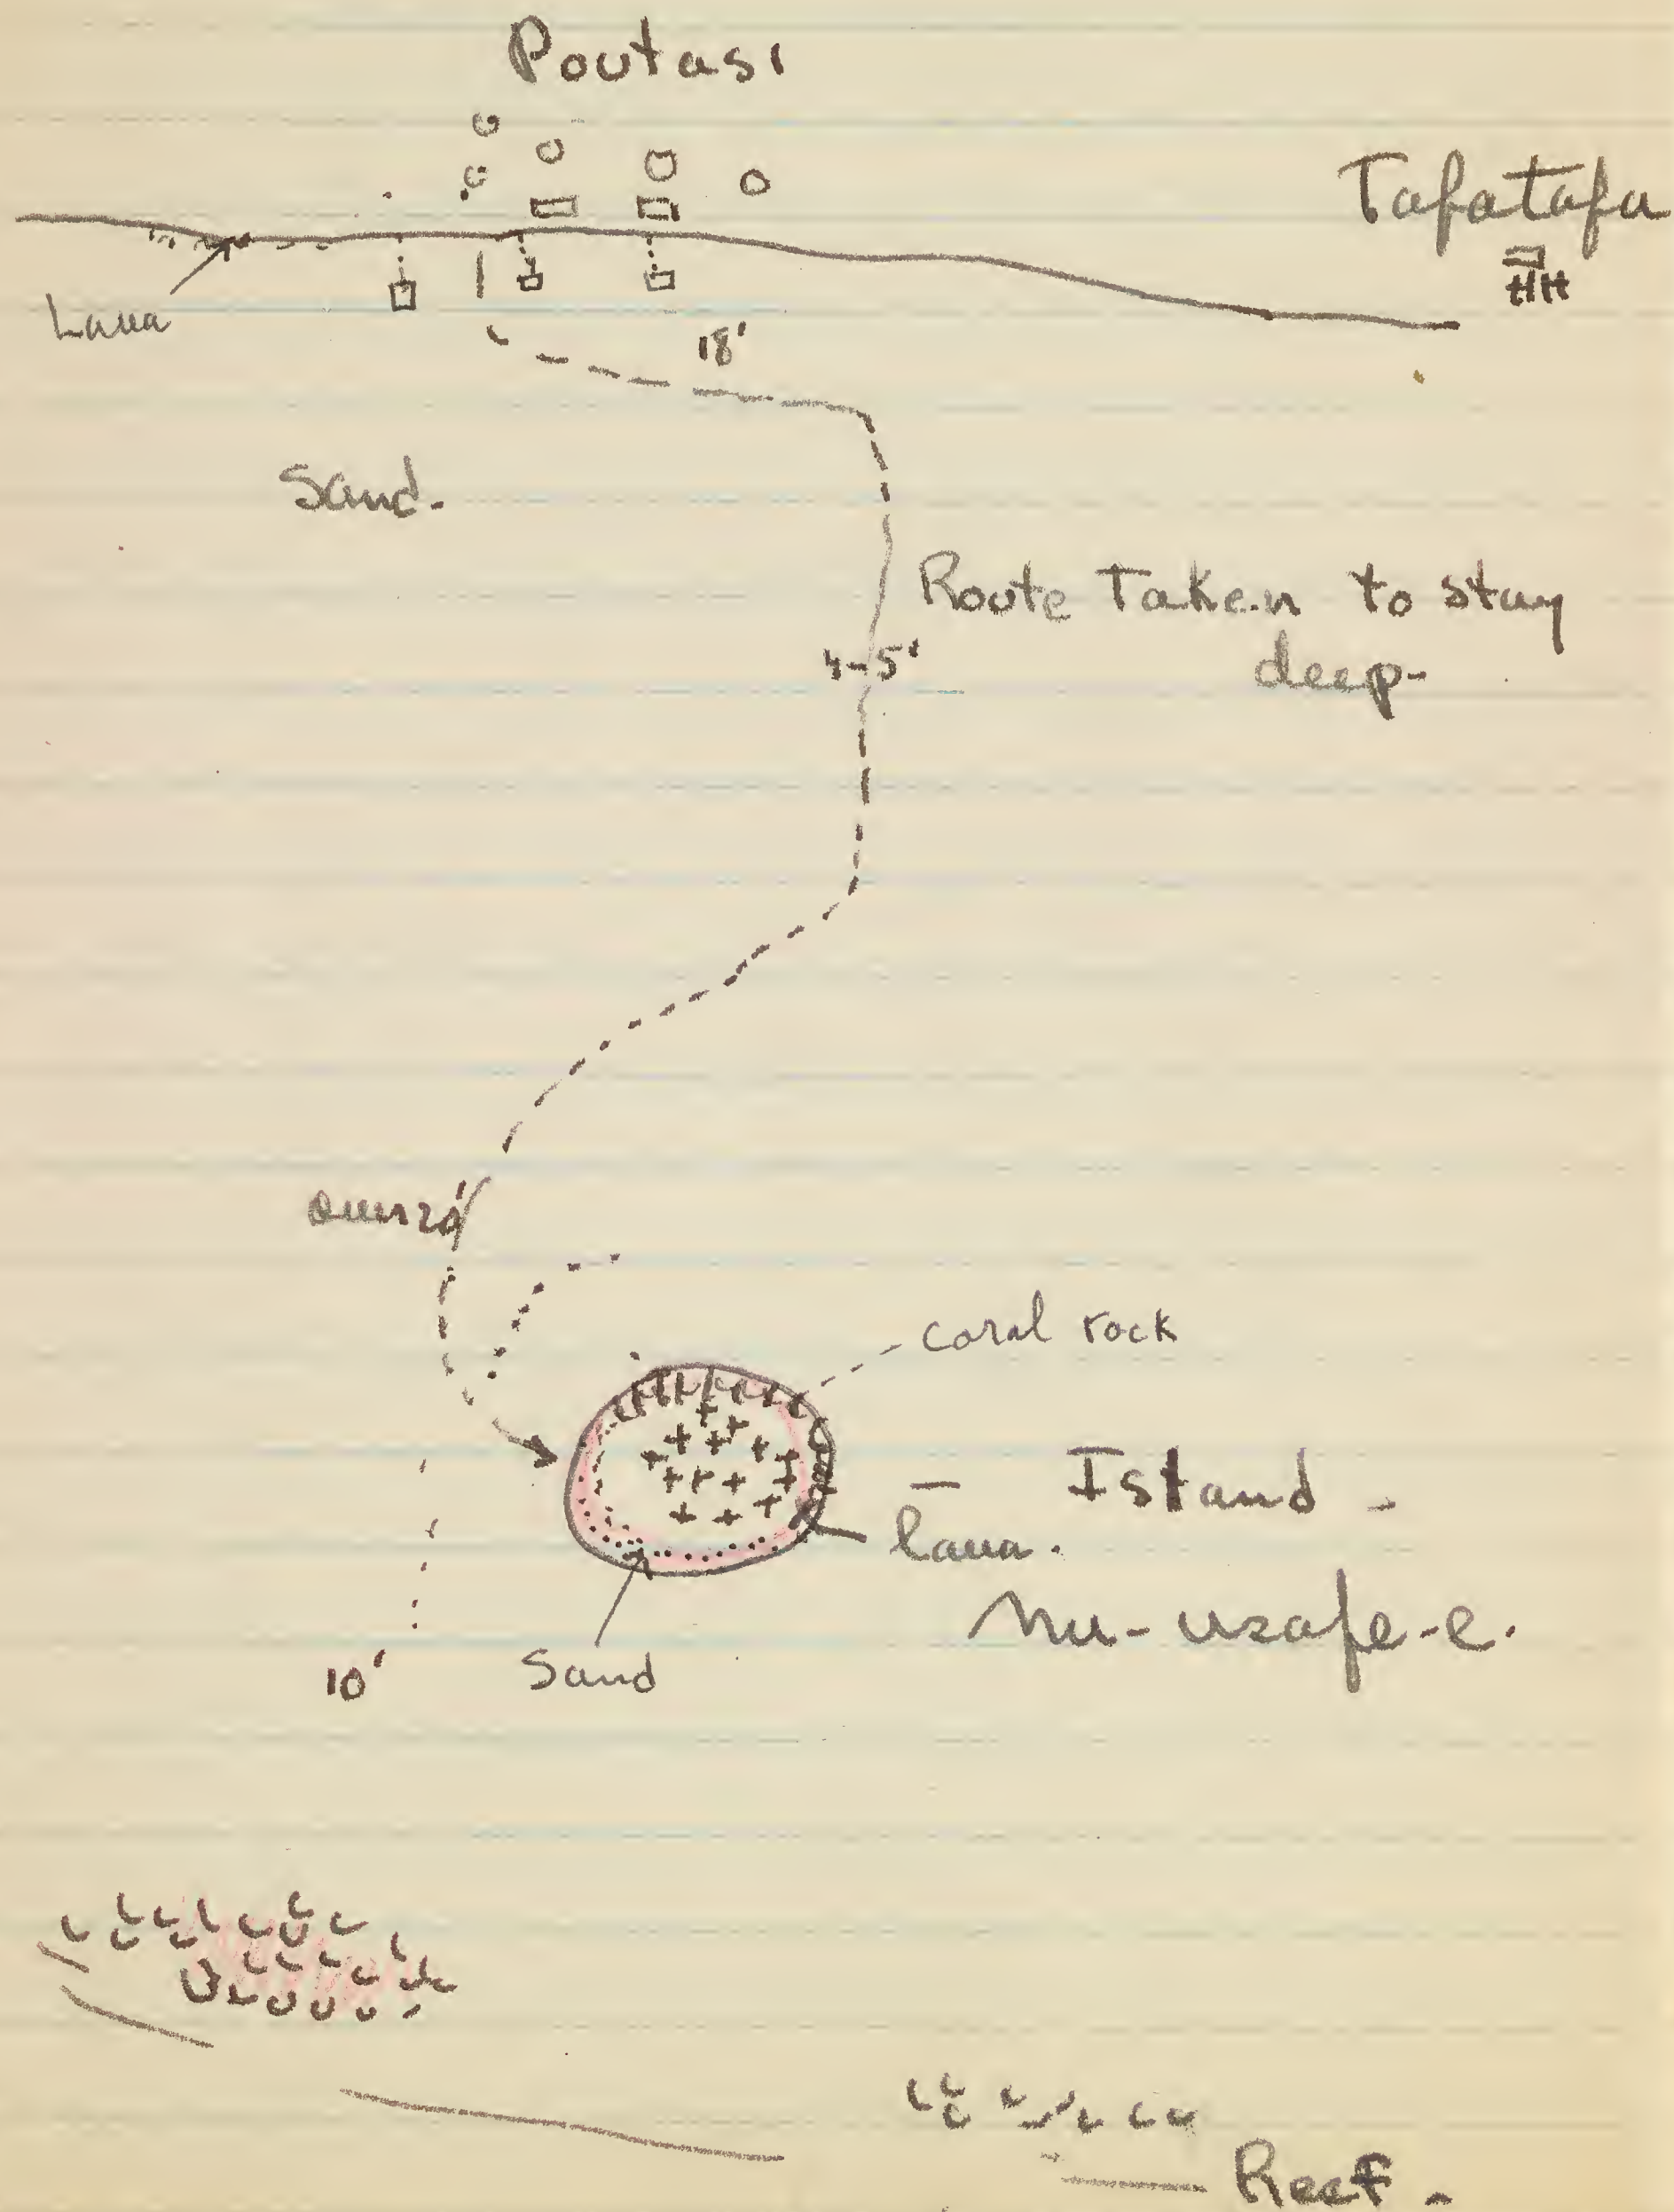 Poutasi
Tafatafa
Lava
18'
Sand.
Route Taken to stay
deep-
4-5'
over 20'
coral rock
- Island -
lava.
Nu-usafe-e.
Sand
10'
Reef -